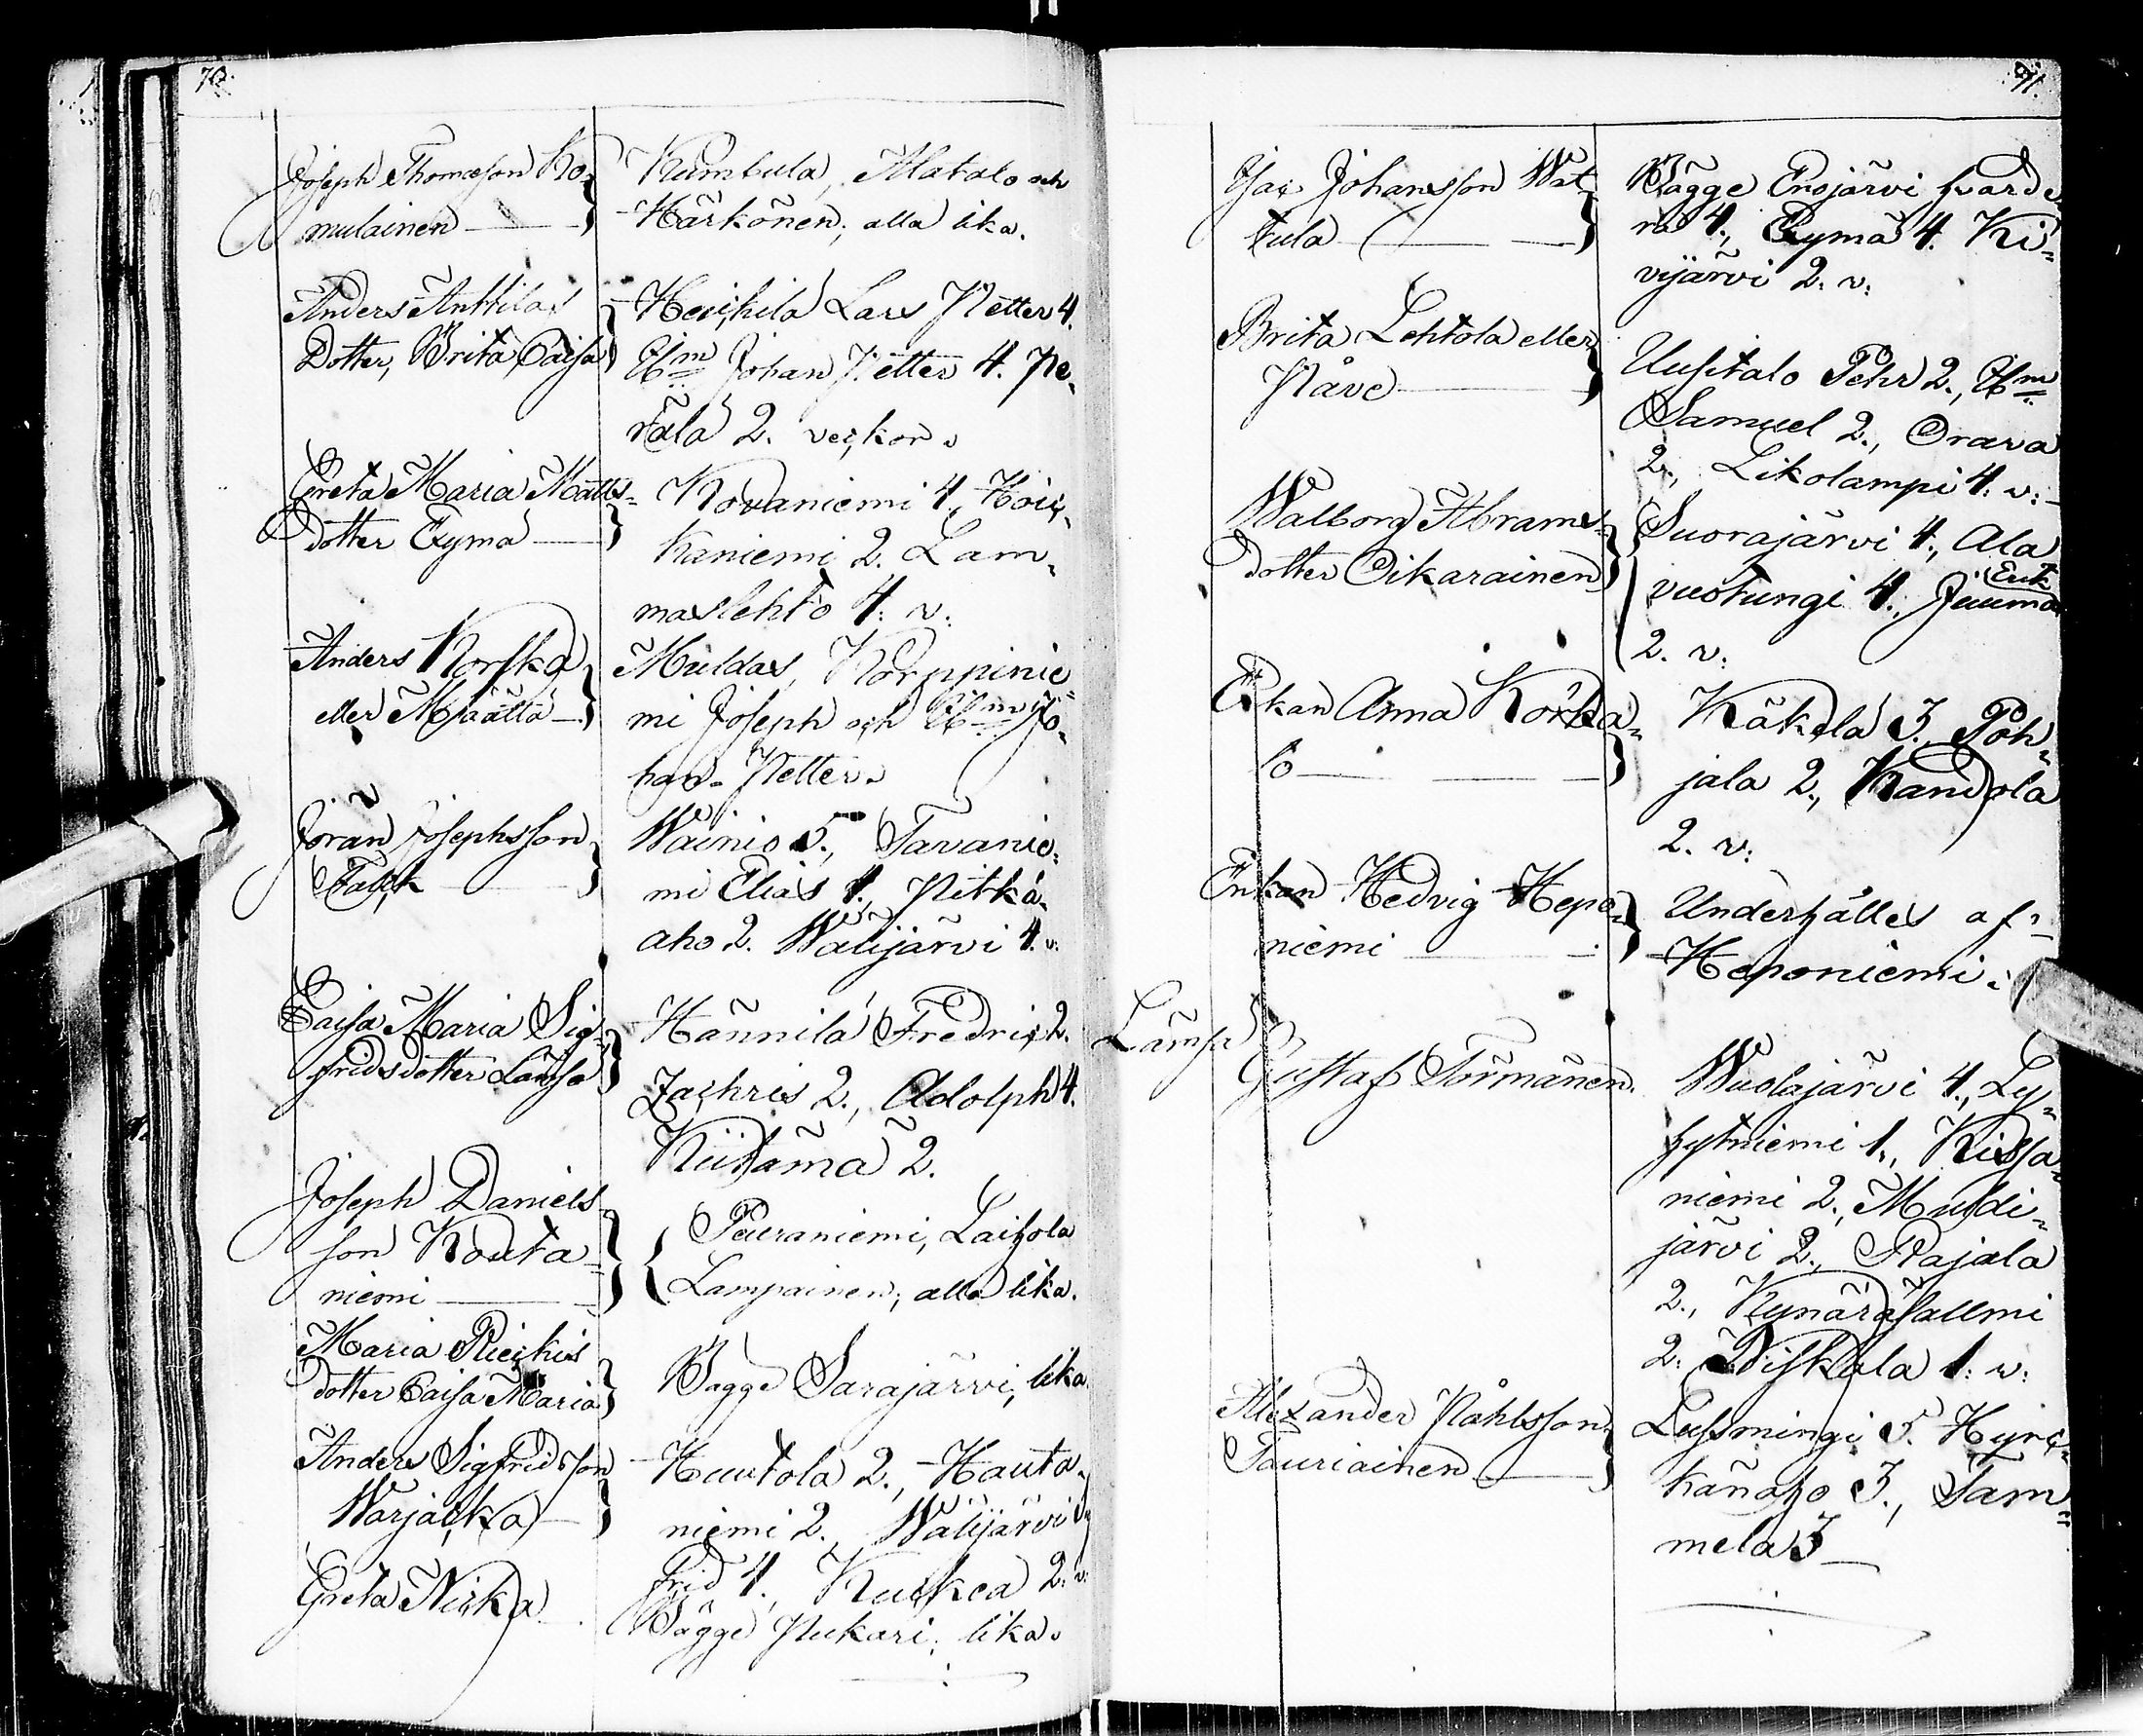 70.
Joseph Thomæson Ko-
mulainen
Kumbula, Alatalo och
Härkönen, alla lika.
Anders Anttilas
Dotter, Brita Caisa
Heickilä Lars Petter 4.
Johan Petter 4. Pe-
rälä 2. veckor.
Greta Maria Matts-
dotter Eymä
Kovaniemi 4, Höic-
kaniemi 2. Lam-
maslehto 4: v:
Anders Korfka
eller Määttä
Muldas, Korppinie-
mi Joseph och Jo-
han-Petter.
Jöran Josephsson
Falck
Wainio 5., Tavanie-
mi Elias 1., Pitkä-
aho 2. Wälijärvi 4. v:
Caisa Maria Sig-
fridsdotter Länsa
Hännilä Fredric 2.
Zachris 2., Adolph 4.
Kiitämä 2.
Joseph Daniels-
son Kouta-
niemi
Pauraniemi, Laihola
Lampainen, alla lika.
Maria Rieckis
dotter Caisa Maria
Bagge Sarajärvi, lika
Anders Sigfridsson
Warjacka
Huutola 2., Hauta-
niemi 2., Wälijärvi
frid 4., Kuckea 2: v:
Greta Nicka
Bägge Pukari, lika.
71.
Isac Johansson Wat-
tula
Bägge Enojärvi hvarde-
ra 4., Eymä 4. Ki-
vijärvi 2. v:
Brita Lehtola eller
Påve
Uusitalo Pehr 2.,
Samuel 2., Orava
2., Likolampi 4: v:
Walborg Abrams-
dotter Oikarainen
Suorajärvi 4., Ala
vuotungi 4., Juuma
Erik
2. v:
Enkan Anna Korka-
lo
Käkelä 3., Poh-
jala 2., Kandola
2. v:
Enkan Hedvig Hepo-
niemi
Underhålles af
Heponiemi.
Länsa
Gustaf Törmänen.
Wuolajärvi 4., Ly-
hytniemi 1., Kissa-
niemi 2., Mudi-
järvi 2., Rajala
2., Kynäräsallmi
2. Piskala 1: v:
Alexander Påhlsson
Tauriainen
Lusmingi 5. Hyric-
känaho 3., Tam-
mela 3